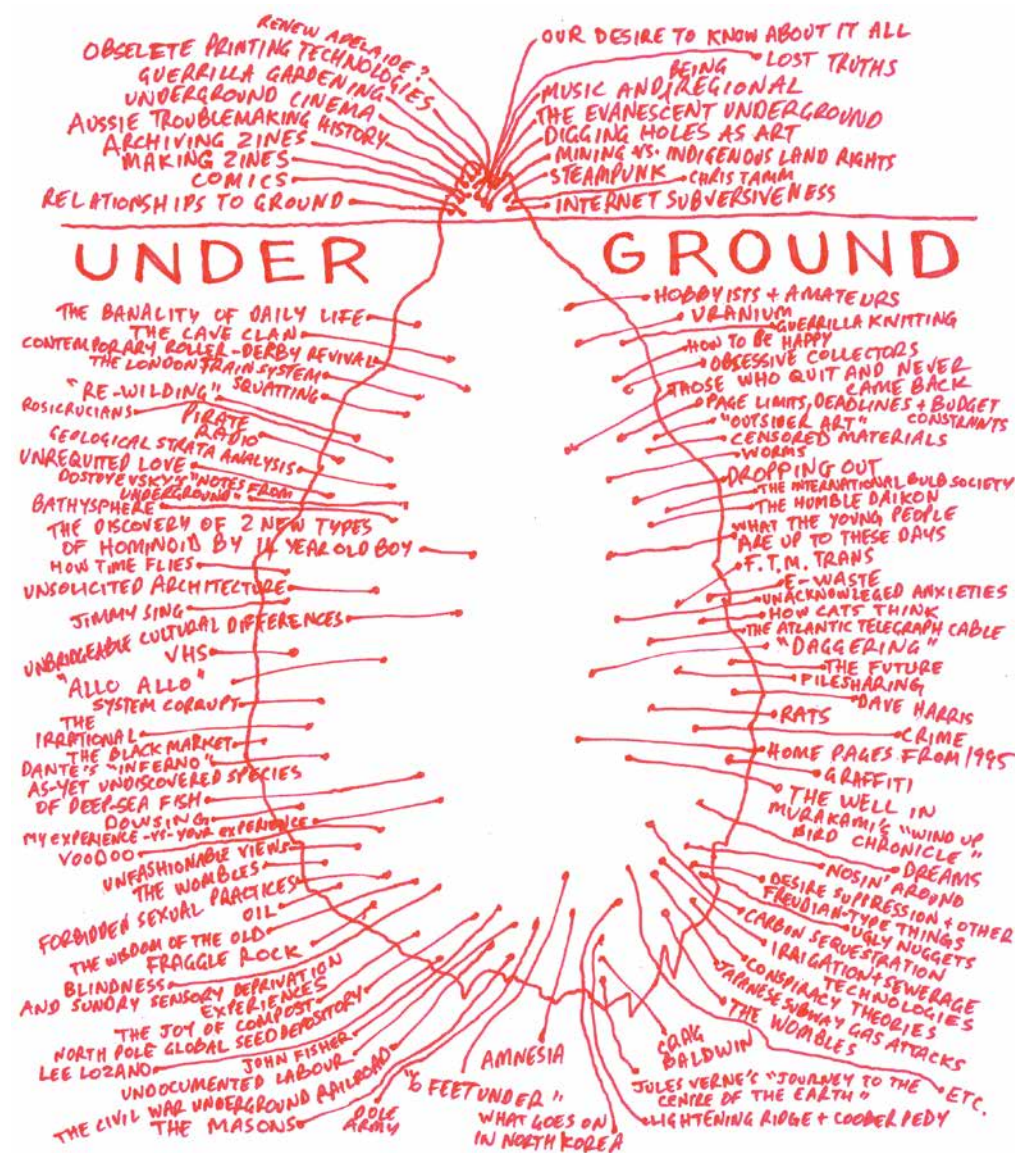 RENEW ADELAIDE?
OBSELETE PRINTING TECHNOLOGIES
GUERRILLA GARDENING
UNDERGROUND CINEMA
AUSSIE TROUBLEMAKING HISTORY
ARCHIVING ZINES
MAKING ZINES
COMICS
RELATIONSHIPS TO GROUND
OUR DESIRE TO KNOW ABOUT IT ALL
LOST TRUTHS
MUSIC AND BEING REGIONAL
THE EVANESCENT UNDERGROUND
DIGGING HOLES AS ART
MINING VS. INDIGENOUS LAND RIGHTS
STEAMPUNK
CHRIS TAMM
INTERNET SUBVERSIVENESS
UNDER GROUND
THE BANALITY OF DAILY LIFE
THE CAVE CLAN
CONTEMPORARY ROLLER-DERBY REVIVAL
THE LONDON TRAIN SYSTEM
SQUATTING
"RE-WILDING"
ROSICRUCIANS
PIRATE
RADIO
GEOLOGICAL STRATA ANALYSIS
UNREQUITED LOVE
DOSTOYEVSKY'S "NOTES FROM
UNDERGROUND"
BATHYSPHERE
THE DISCOVERY OF 2 NEW TYPES
OF HOMINOID BY 14 YEAR OLD BOY
HOW TIME FLIES
UNSOLICITED ARCHITECTURE
JIMMY SING
UNBRIDGEABLE CULTURAL DIFFERENCES
VHS
"ALLO ALLO"
SYSTEM CORRUPT
THE
IRRATIONAL
THE BLACK MARKET
DANTE'S "INFERNO"
AS-YET UNDISCOVERED SPECIES
OF DEEP-SEA FISH
DOWSING
MY EXPERIENCE -VS- YOUR EXPERIENCE
VOODOO
UNFASHIONABLE VIEWS
THE WOMBLES
FORBIDDEN SEXUAL PRACTICES
OIL
THE WISDOM OF THE OLD
FRAGGLE ROCK
BLINDNESS
AND SUNDRY SENSORY DEPRIVATION
EXPERIENCES
THE JOY OF COMPOST
NORTH POLE GLOBAL SEED DEPOSITORY
LEE LOZANO
JOHN FISHER
UNDOCUMENTED LABOUR
THE CIVIL WAR UNDERGROUND RAILROAD
THE MASONS
DOLE
ARMY
"6 FEET UNDER"
AMNESIA
WHAT GOES ON
IN NORTH KOREA
HOBBYISTS + AMATEURS
URANIUM
GUERRILLA KNITTING
HOW TO BE HAPPY
OBSESSIVE COLLECTORS
THOSE WHO QUIT AND NEVER
CAME BACK
PAGE LIMITS, DEADLINES + BUDGET
CONSTRAINTS
"OUTSIDER ART"
CENSORED MATERIALS
WORMS
DROPPING OUT
THE INTERNATIONAL BULB SOCIETY
THE HUMBLE DAIKON
WHAT THE YOUNG PEOPLE
ARE UP TO THESE DAYS
F.T.M. TRANS
E-WASTE
UNACKNOWLEGED ANXIETIES
HOW CATS THINK
THE ATLANTIC TELEGRAPH CABLE
"DAGGERING"
THE FUTURE
FILESHARING
DAVE HARRIS
RATS
CRIME
HOME PAGES FROM 1995
GRAFFITI
THE WELL IN
MURAKAMI'S "WIND UP
BIRD CHRONICLE"
DREAMS
NOSIN' AROUND
DESIRE SUPPRESSION + OTHER
FREUDIAN-TYPE THINGS
UGLY NUGGETS
CARBON SEQUESTRATION
IRRIGATION + SEWERAGE
TECHNOLOGIES
CONSPIRACY THEORIES
JAPANESE SUBWAY GAS ATTACKS
THE WOMBLES
ETC.
CRAIG
BALDWIN
JULES VERNE'S "JOURNEY TO THE
CENTRE OF THE EARTH"
LIGHTENING RIDGE + COOBER PEDY